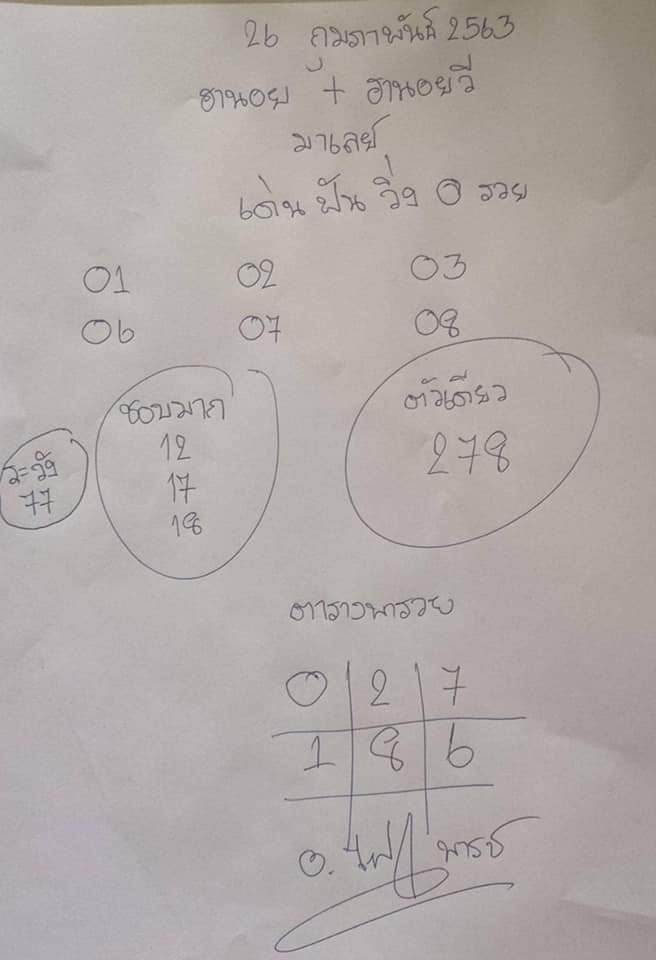 26 กุมภาพันธ์ 2563
ฮานอย + ฮานอยวี
มาเลย์
เด่น ฟัน วิ่ง 0 รวย
01 02 03
06 07 08
ชอบมาก
12
17
18
ระวัง
77
ตัวเดียว
278
ตารางพารวย
0 2 7
1 8 6
อ.